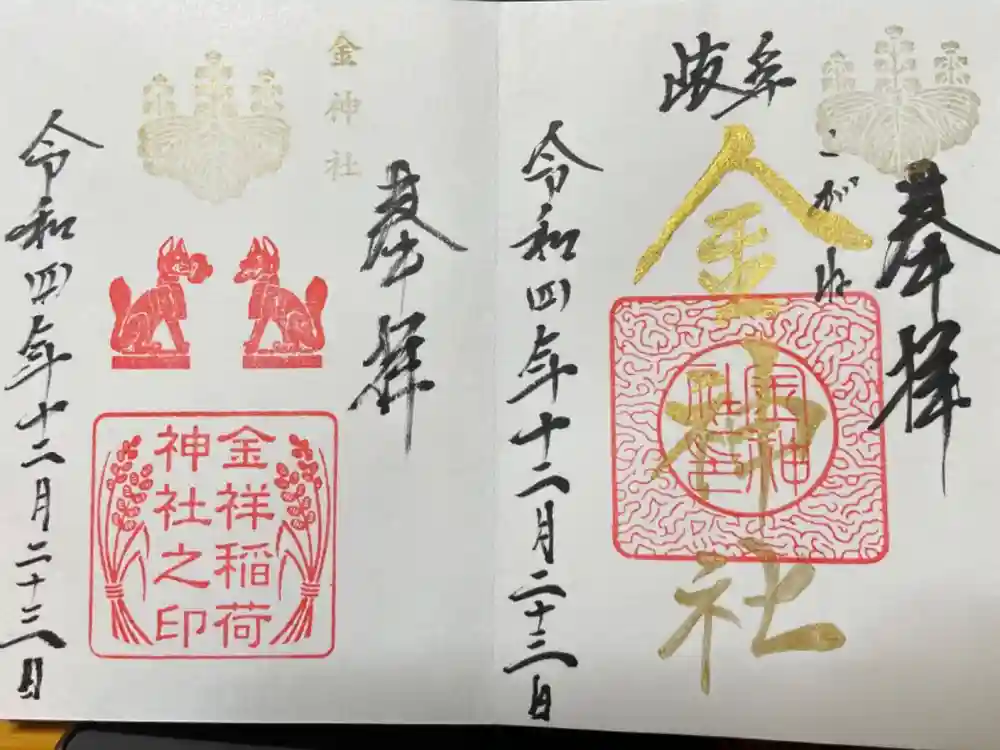 奉拝
こがね
岐阜
金神社
金神
社印
令和四年十二月二十三日
奉拝
金神社
金祥稲荷
神社之印
令和四年十二月二十三日